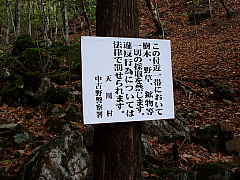 この付近一帯において
樹木、野草、鉱物等
一切の採取を禁じます。
違反行為については
法律で罰せられます。
天川村
中吉野警察署